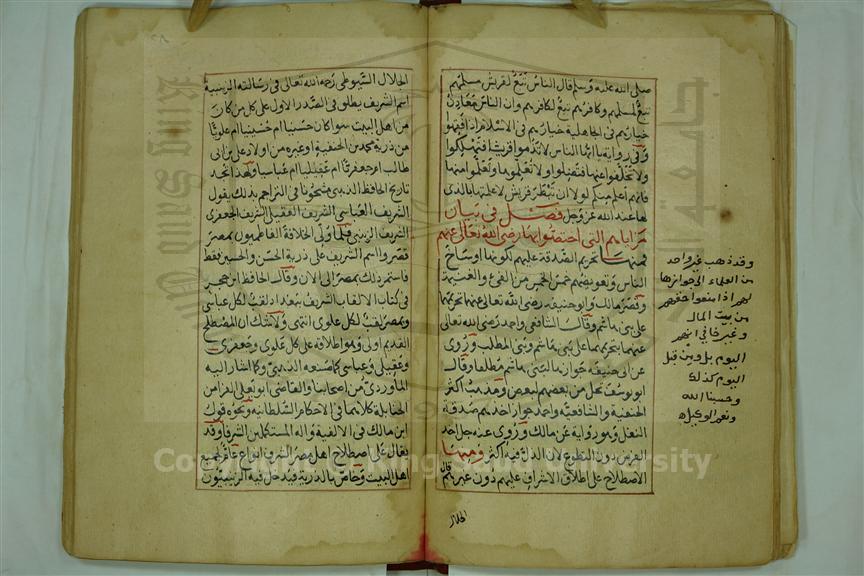 صلى الله عليه وسلم قال الناس تبع لقريش مسلمهم
تبع لمسلمهم وكافرهم تبع لكافرهم وان الناس معادن
خيارهم في الجاهلية خيارهم في الاسلام اذا فقهوا
وفي رواية يا ايها الناس لا تذموا قريشا فتهلكوا
ولا تخلفوا عنها فتضلوا ولا تعلموها وتعلموا منها
فانهم اعلم منكم لولا ان تبطر قريش لاعلمتها بالذي
لها عند الله عز وجل فصل في بيان
مزاياهم التي اختصوا بها رضي الله تعالى عنهم
فمنها تحريم الصدقة عليهم لكونها اوساخ
الناس وتعويضهم خمس الخمس من الفئ والغنيمة
وقصر مالك وابو حنيفه رضي الله تعالى عنهما تحريمها
على بني هاشم وقال الشافعي واحمد رضي الله تعالى
عنهما بتحريمها على بني هاشم وبني المطلب وروي
عن ابي حنيفه جوازها لبني هاشم مطلقا وقال
ابو يوسف تحل من بعضهم لبعض ومذهب اكثر
الحنفية والشافعية واحمد جواز اخذهم صدقة
النفل وهو رواية عن مالك وروي عنه حل اخذ
الفرض دون التطوع لان الذل فيه اكثر ومنها
الاصطلاح على اطلاق الاشراف عليهم دون غيرهم قال
الجلال
وقد ذهب غير واحد
من العلماء الى جوازها
لهم اذا منعوا حقهم
من بيت المال
وغير خافي انهم
اليوم بل ومن قبل
اليوم كذلك
وحسبنا الله
ونعم الوكيل
الجلال السيوطي رحمه الله تعالى في رسالته الزينبية
اسم الشريف يطلق في الصدر الاول على كل من كان
من اهل البيت سوا كان حسنيا ام حسينيا ام علويا
من ذرية محمد بن الحنفية او غيره من اولاد علي بن ابي
طالب ام جعفريا ام عقيليا ام عباسيا ولهذا تجد
تاريخ الحافظ الذهبي مشحونا في التراجم بذلك يقول
الشريف العباسي الشريف العقيلي الشريف الجعفري
الشريف الزينبي فلما ولي الخلافة الفاطميون بمصر
قصروا اسم الشريف على ذرية الحسن والحسين فقط
فاستمر ذلك بمصر الى الان وقال الحافظ ابن حجر
في كتاب الالقاب الشريف ببغداد لقب لكل عباسي
وبمصر لقب لكل علوي انتهى ولا شك ان المصطلح
القديم اولى وهو اطلاقه على كل علوي وجعفري
وعقيلي وعباسي كما صنعه الذهبي وكما اشار اليه
الماوردي من اصحابنا والقاضي ابو يعلى الفرا من
الحنابلة كلاهما في الاحكام السلطانيه ونحوه قول
ابن مالك في الالفية واله المستكملين الشرفا وقد
يقال على اصطلاح اهل مصر الشرف انواع عام لجميع
اهل البيت وخاص بالذرية فيدخل فيه الزينبيون